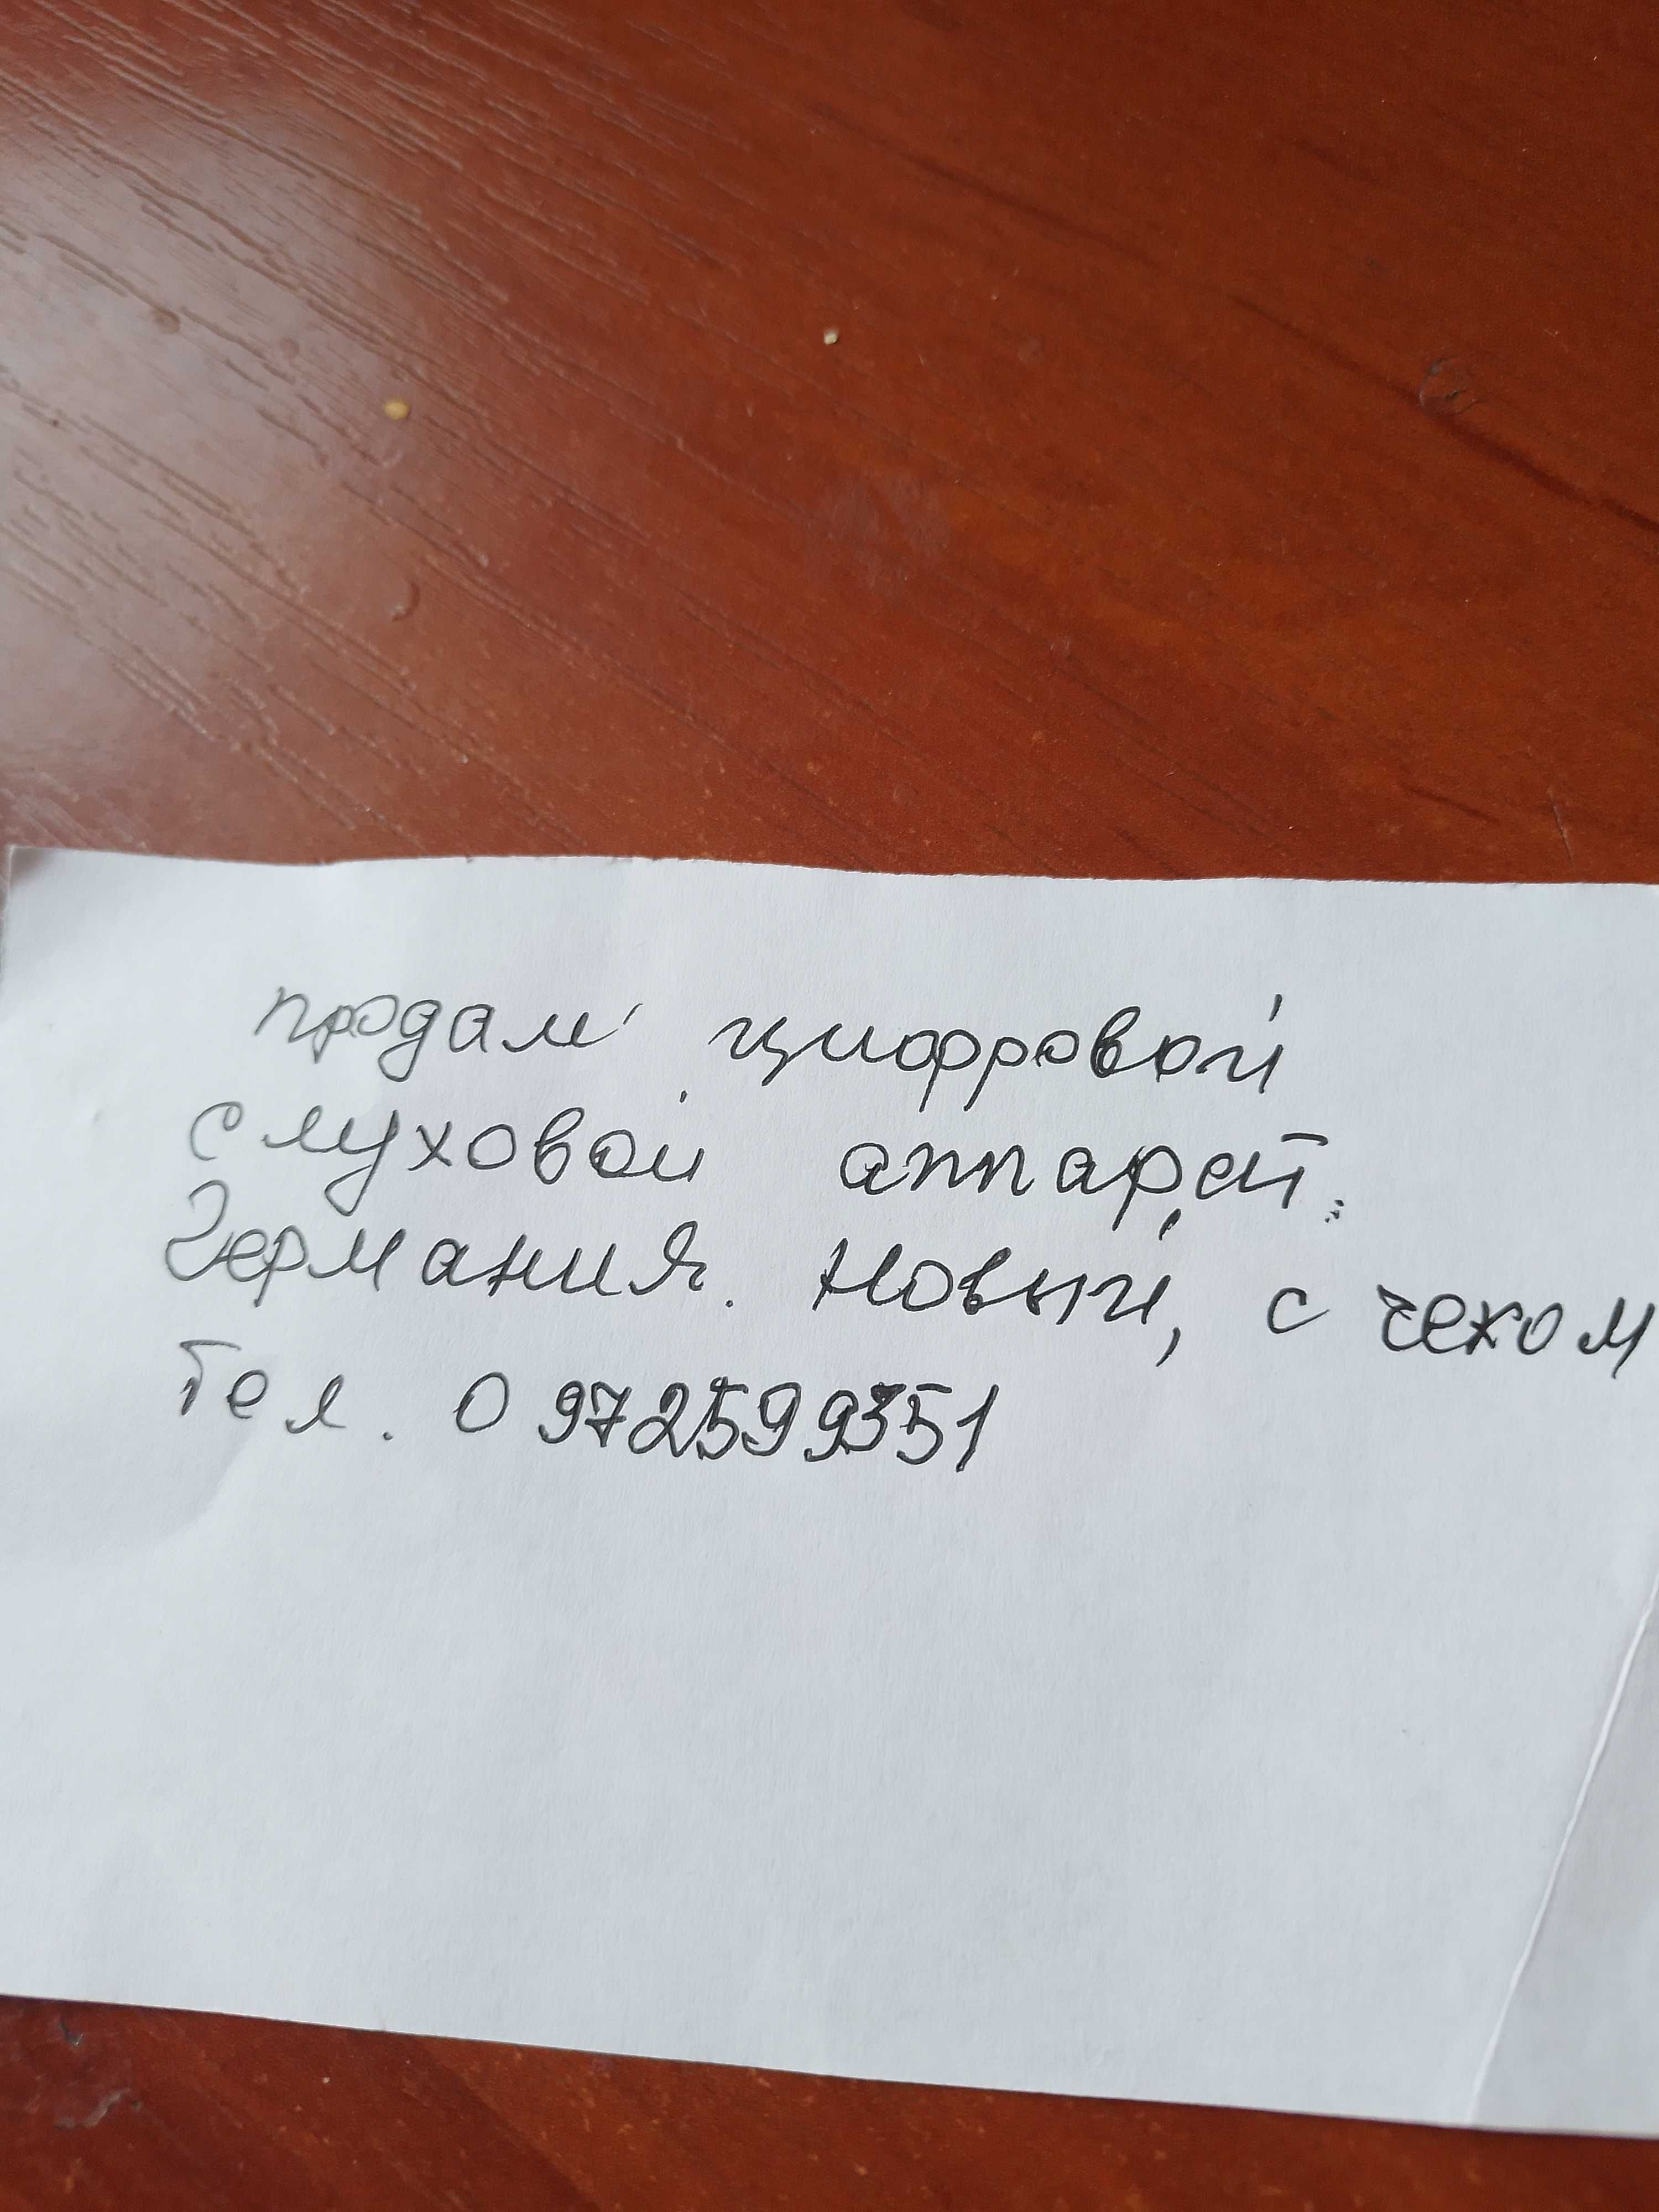 продам цифровой
слуховой аппарат.
Германия. Новый, с чеком
Тел. 0972599351